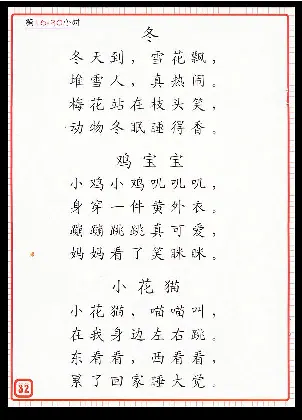 第16-30小时
冬
冬天到，雪花飘，
堆雪人，真热闹。
梅花站在枝头笑，
动物冬眠睡得香。
鸡宝宝
小鸡小鸡叽叽叽，
身穿一件黄外衣。
蹦蹦跳跳真可爱，
妈妈看了笑眯眯。
小花猫
小花猫，喵喵叫，
在我身边左右跳。
东看看，西看看，
累了回家睡大觉。
32